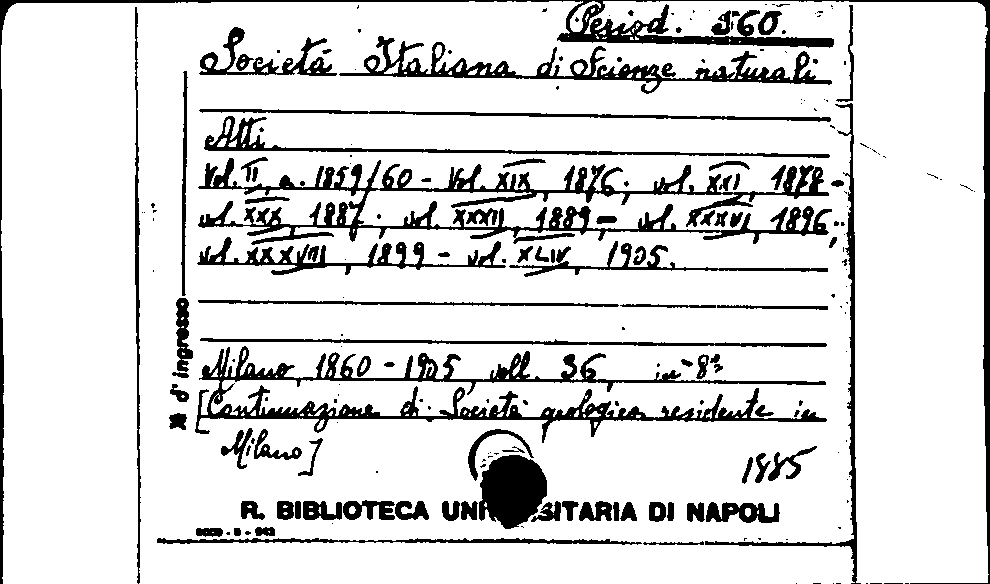 Period. 560.
Società Italiana di Scienze naturali
Atti.
Vol. II, a. 1859/60 - Vol. XIX, 1876; vol. XXI, 1878 -
vol. XXX, 1887; vol. XXXII, 1889 - vol. XXXVI, 1896;
vol. XXXVIII, 1899 - vol. XLIV, 1905.
Milano, 1860 - 1905, voll. 36, in-8º
[Continuazione di: Società geologica residente in
Milano]
1885
R. BIBLIOTECA UNIVERSITARIA DI NAPOLI
d'ingresso